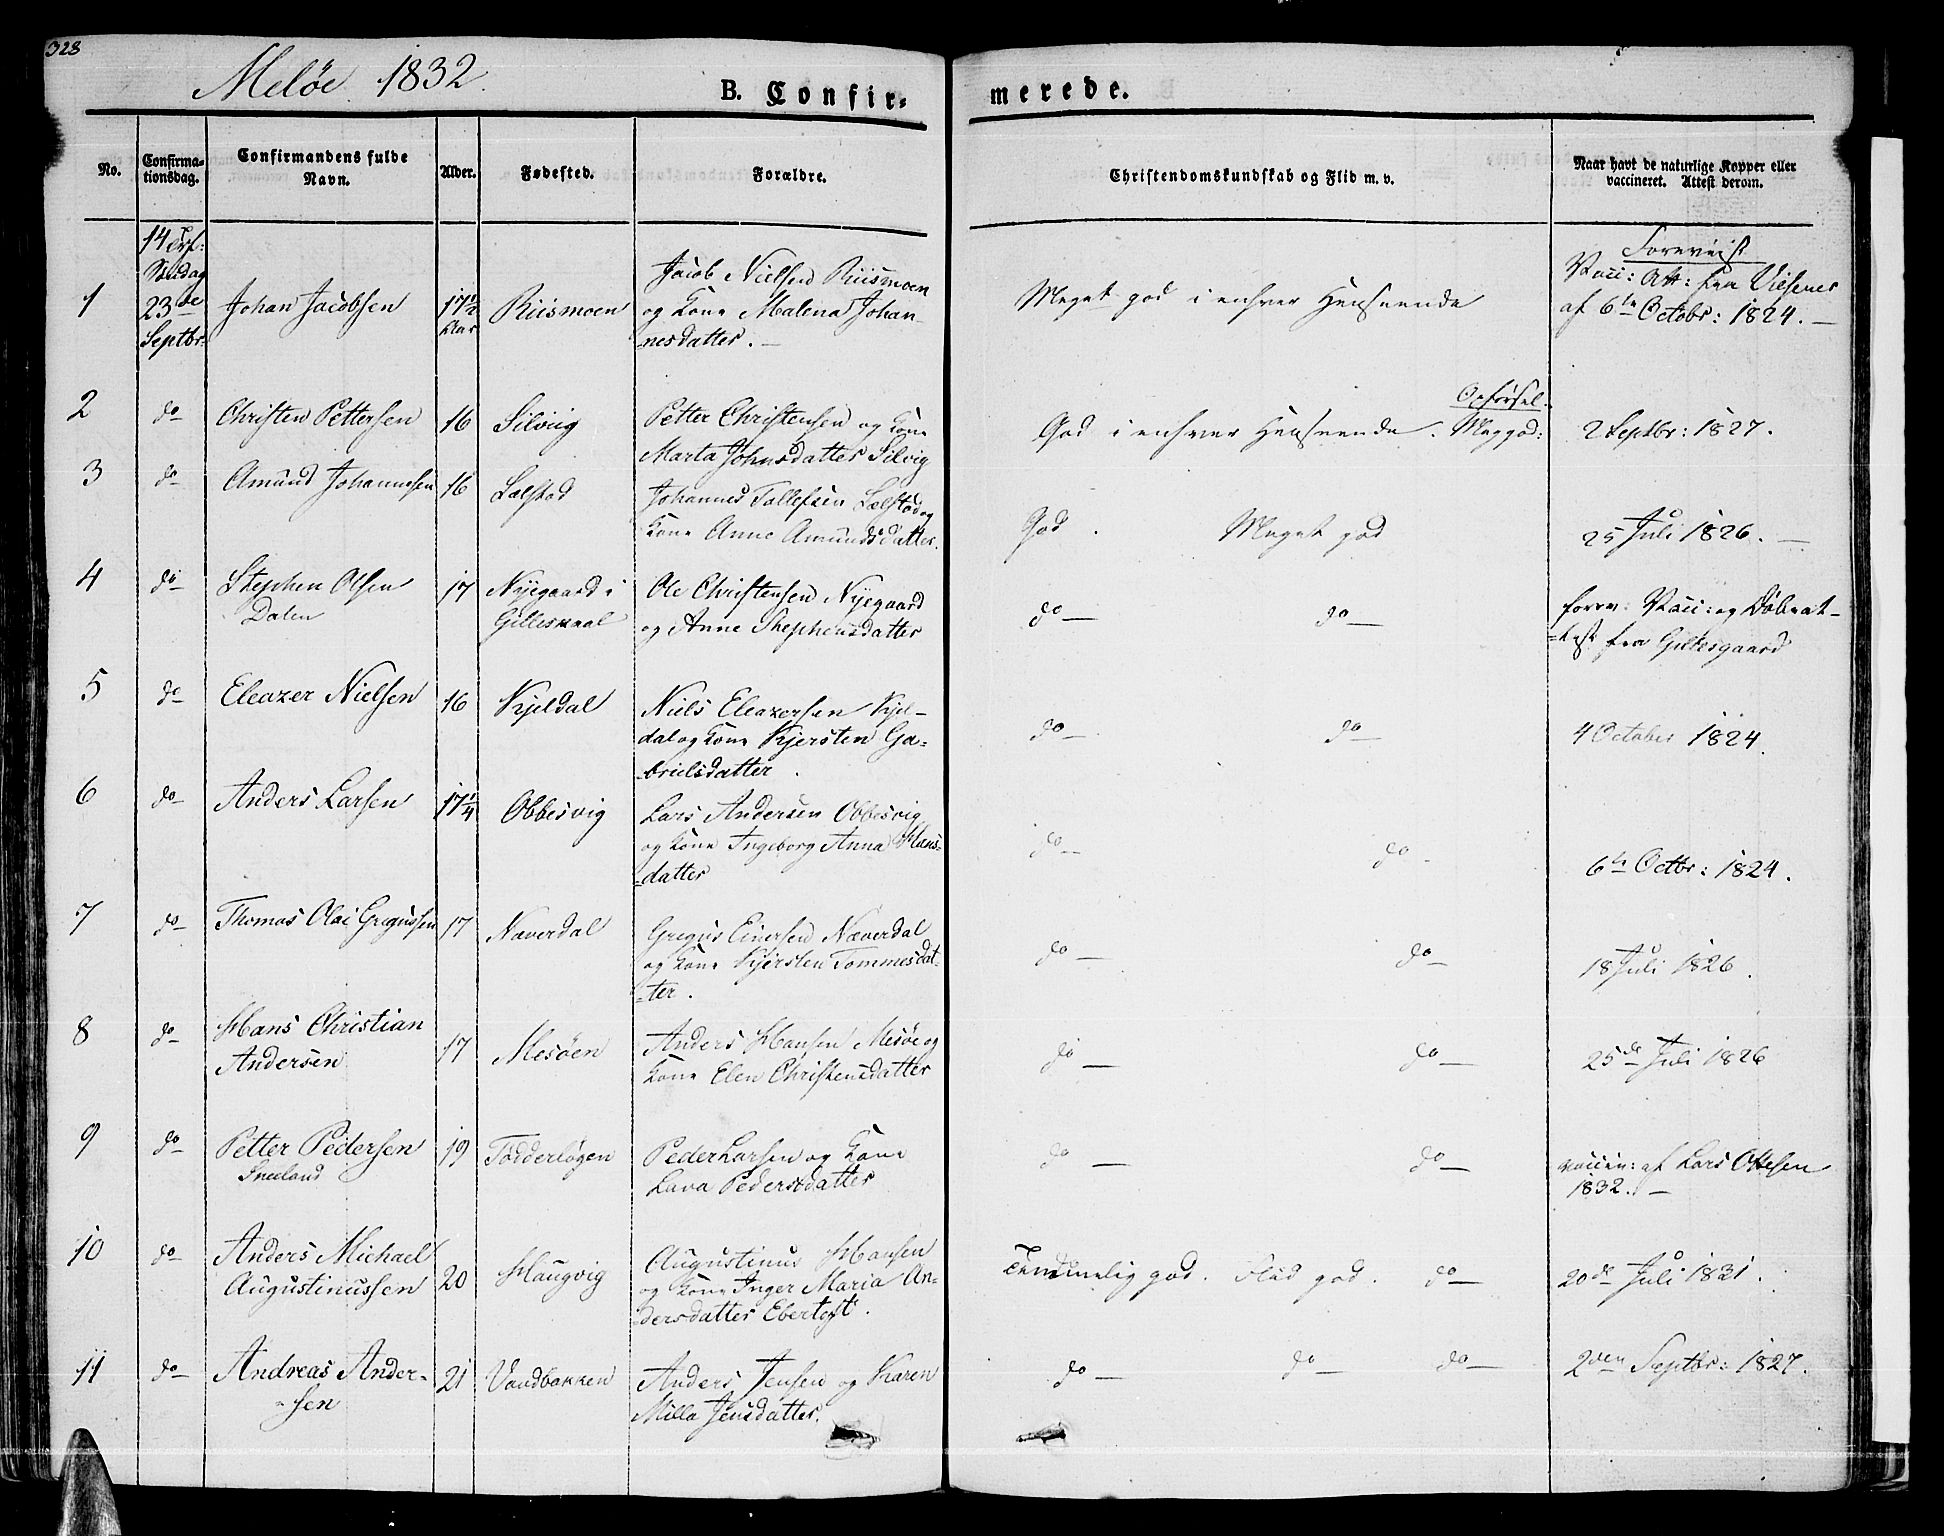 328
Meløe 1832.
B. Confir-
merede.
No.
Confirma-
tionsdag.
Confirmandens fulde
Navn.
Alder.
Fødested.
Forældre.
Christendomskundskab og Flid m. v.
Naar havt de naturlige Kopper eller
vaccineret. Attest derom.
1
14
Søndag
23de
Septbr:
Johan Jacobsen
17 1/2
Aar
Riismoen
Jacob Nielsen Riismoen
og Kone Malena Johan-
-nesdatter. —
Meget god i enhver Henseende
Foreviist
Vacc: Att: fra
af 6te Octobr: 1824. —
2
do
Christen Pettersen
16
Silviig
Petter Christensen og Kone
Marta Johnsdatter Silvig
God i enhver Henseende.
Opførsel
Meg god:
2 Septbr: 1827.
3
do
Amund Johannesen
16
Selstad
Johannes Tollefsen Selstad og
Kone Anne Amundsdatter.
God. Meget god
25 Juli 1826. —
4
do
Stephen Olsen
Dalen
17
Nyegaard i
Gilleskaal
Ole Christensen Nyegaard
og Anne Stephensdatter
do — do —
forev: Vacc: og Døbeat-
-test fra Gilleskaal
5
do
Eleazer Nielsen
16
Kjeldal
Niels Eleazersen Kjel-
dal og Kone Kjersten Ga-
-brielsdatter.
do — do —
4 October 1824.
6
do
Anders Larsen
17 1/4
Obbesvig
Lars Andersen Obbesvig
og Kone Ingeborg Anna Hans-
-datter
do — do -
6te Octbr: 1824.
7
do
Thomas Olai Gregussen
17
Næverdal
Gregus Einersen Næverdal
og Kone Kjersten Tommesdat-
-ter.
do — do —
18 Juli 1826.
8
do
Hans Christian
Andersen
17
Mesøen
Anders Hansen Mesøe og
Kone Elen Christensdatter
do — do —
25de Juli 1826
9
do
Petter Pedersen
19
Peder Larsen og Kone
Lava Pedersdatter
do — do —
vaccin: af Lars Ottesen
1832. —
10
do
Anders Michael
Augustinussen
20
Haugvig
Augustinus Hansen
og Kone Inger Maria An-
dersdatter Ebertoft.
Temmelig god. Fliid god. do —
20de Juli 1831.
11
do
Andreas Ander-
-sen
21
Vandbakken
Anders Jensen og Karen
Milla Jensdatter.
do — do — do —
2den Septbr: 1827.